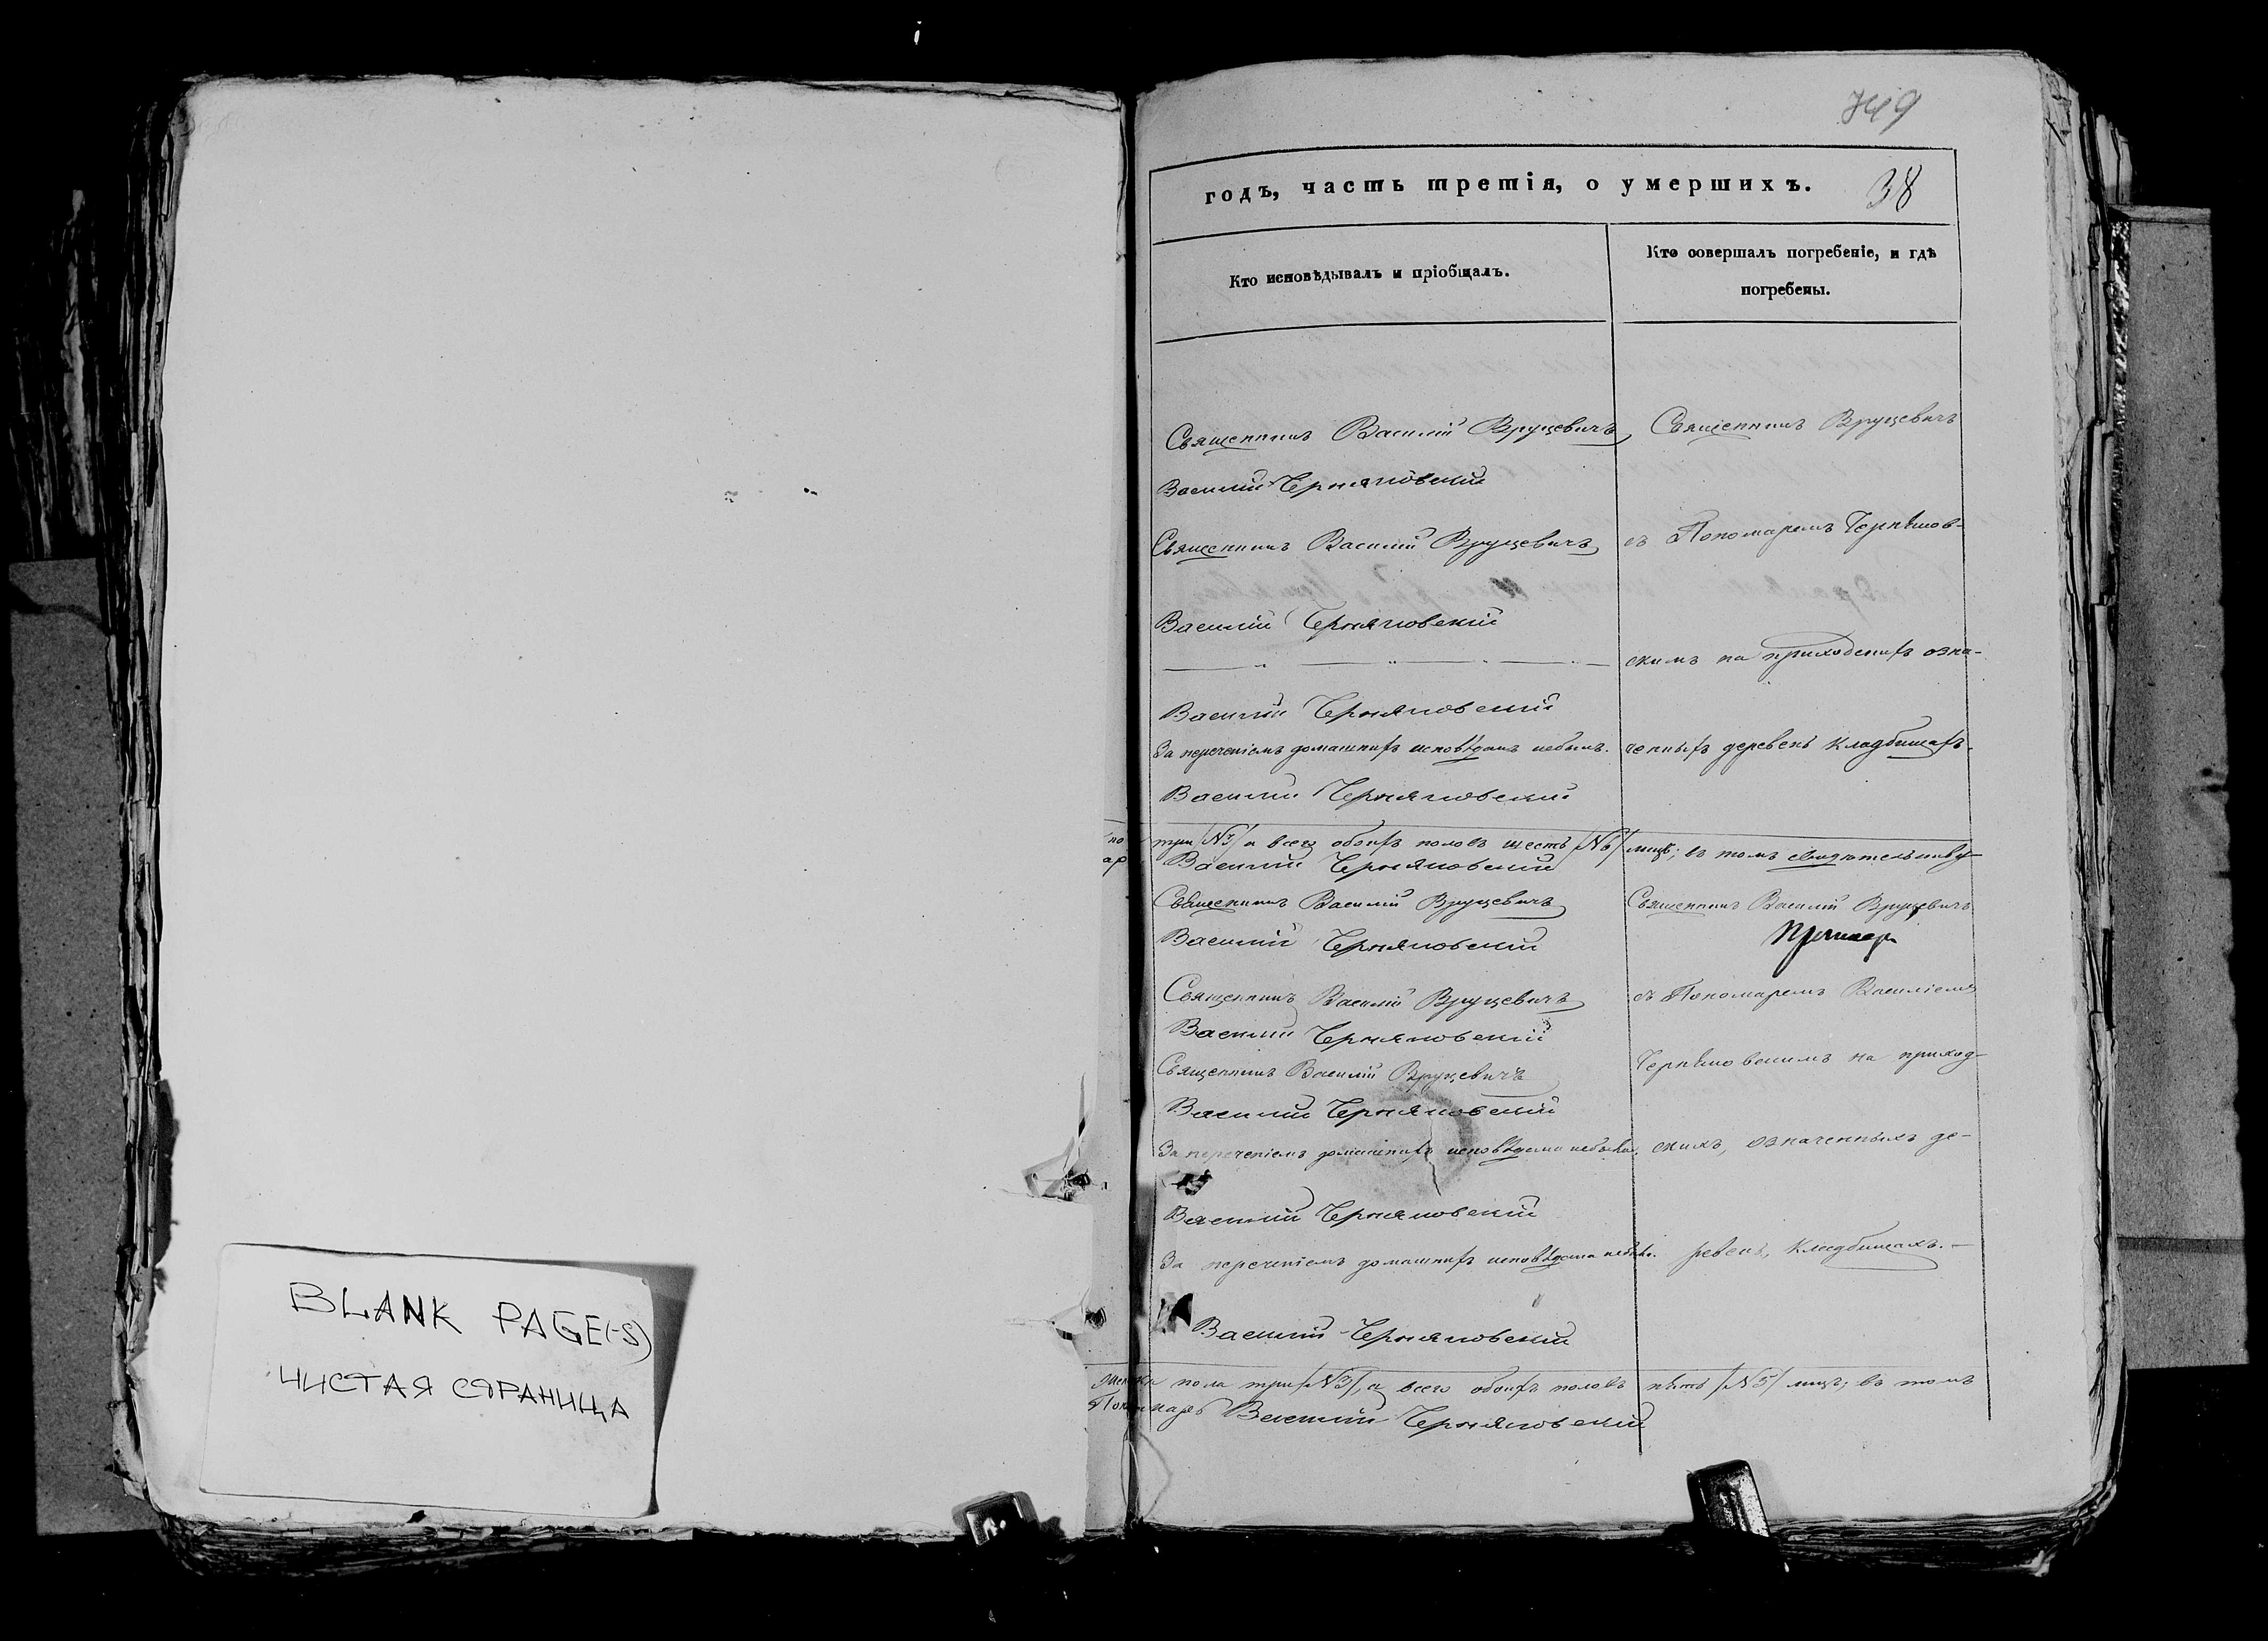 749
годъ, часть третія, о умершихъ. 38
Кто исповѣдывалъ и пріобщалъ.
Кто совершалъ погребеніе, и гдѣ
погребены.
Священникъ Василій Вруцевичъ
Священникъ Вруцевичъ
Василій Черняховскій
Священникъ Василій Вруцевичъ
съ Пономаремъ Черняхов-
Василій Черняховскій
скимъ на приходскихъ озна-
Василій Черняховскій
За нереченіемъ домашнихъ исповѣданъ небылъ.
ченныхъ деревень кладбищахъ.
Василій Черняховскій
три /№3/ а всего обоихъ половъ шесть /№6/ лицъ; въ томъ свидѣтельству-
Василій Черняховскій
Священникъ Василій Вруцевичъ
Священникъ Василій Вруцевичъ
Василій Черняховскій
Священникъ Василій Вруцевичъ
съ Пономаремъ Василіемъ
Василій Черняховскій
Священникъ Василій Вруцевичъ
Черняховскимъ на приход-
Василій Черняховскій
За нереченіемъ домашнихъ исповѣдана небыла.
скихъ, означенныхъ де-
Василій Черняховскій
За нереченіемъ домашнихъ исповѣдана небыла.
ревень, кладбищахъ.-
Василій Черняховскій
BLANK PAGE(-S)
ЧИСТАЯ СТРАНИЦА
женска пола три /№3/, а всего обоихъ половъ пять /№5/ лицъ; въ томъ
Пономарь Василій Черняховскій